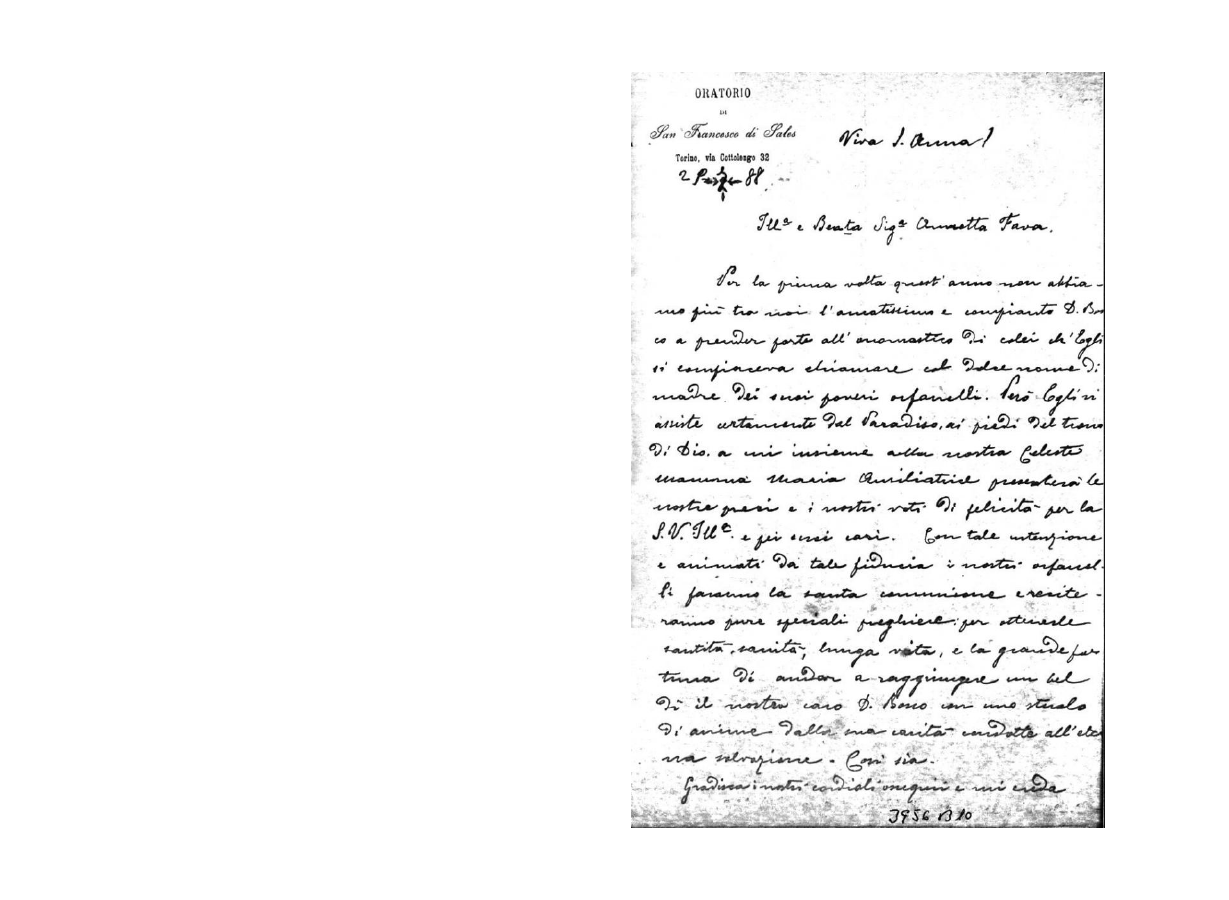 ORATORIO
DI
San Francesco di Sales
Torino, via Cottolengo 32
2 88
Viva S. Anna!
Ill.a e Beata Sig.a Annetta Fava.
Per la prima volta quest'anno non abbia-
mo più tra noi l'amatissimo e compianto D. Bos
co a prender parte all'onomastico di colei ch'Egli
si compiaceva chiamare col dolce nome di
madre dei suoi poveri orfanelli. Però Egli vi
assiste certamente dal Paradiso, ai piedi del trono
di Dio. a cui insieme alla nostra Celeste
mamma Maria Ausiliatrice presenterà le
nostre preci e i nostri voti di felicità per la
S. V. Ill.a e pei suoi cari. Con tale intenzione
e animati da tale fiducia i nostri orfanel-
li faranno la santa comunione e recite-
ranno pure speciali preghiere per ottenerle
santità, sanità, lunga vita, e la grande for
tuna di andar a raggiungere un bel
dì il nostro caro D. Bosco con uno stuolo
di anime dalla sua carità condotte all'eter
na salvazione. Così sia.
Gradisca i nostri cordiali ossequii e mi creda
3956 B 10